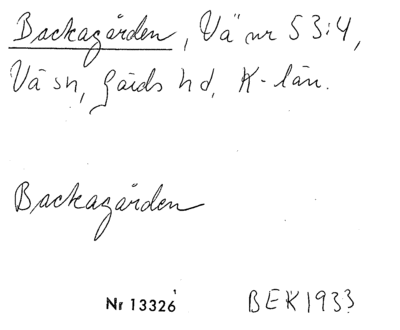 Backagården, Vä nr 53:4,
Vä sn, Gärds hd, K-län.
Backagården
Nr 13326
BEK 1933